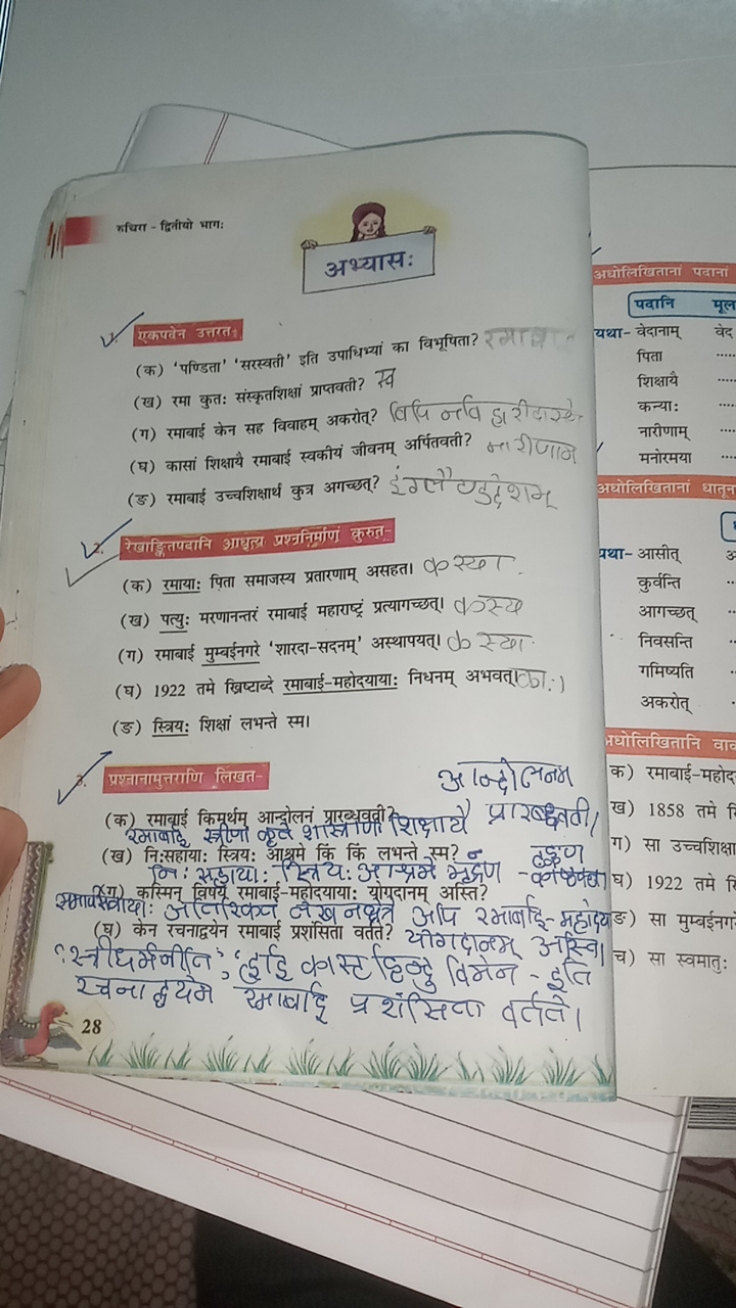 रुचिरा - द्वितीयो भागः
अभ्यासः
1. एकपदेन उत्तरत-
(क) 'पण्डिता' 'सरस्वती' इति उपाधिभ्यां का विभूषिता? रमाबा
(ख) रमा कुतः संस्कृतशिक्षां प्राप्तवती? स्व
(ग) रमाबाई केन सह विवाहम् अकरोत्?
(घ) कासां शिक्षायै रमाबाई स्वकीयं जीवनम् अर्पितवती? नारीणाम
(ङ) रमाबाई उच्चशिक्षार्थं कुत्र अगच्छत्? इंग्लैण्डदेशम्
2. रेखाङ्कितपदानि आधृत्य प्रश्ननिर्माणं कुरुत-
(क) रमायाः पिता समाजस्य प्रतारणाम् असहत। कस्या
(ख) पत्युः मरणानन्तरं रमाबाई महाराष्ट्रं प्रत्यागच्छत्। कस्य
(ग) रमाबाई मुम्बईनगरे 'शारदा-सदनम्' अस्थापयत्। कस्या
(घ) 1922 तमे ख्रिष्टाब्दे रमाबाई-महोदयायाः निधनम् अभवत्। काः
(ङ) स्त्रियः शिक्षां लभन्ते स्म।
3. प्रश्नानामुत्तराणि लिखत-
आन्दोलनम
(क) रमाबाई किमर्थम् आन्दोलनं प्रारब्धवती?
रमाबाई स्त्रीणां कृते शास्त्राणां शिक्षायै प्रारब्धवती।
(ख) निःसहायाः स्त्रियः आश्रमे किं किं लभन्ते स्म?
निः सहायाः स्त्रियः आश्रमे मुद्रण - टङ्कण
(ग) कस्मिन् विषये रमाबाई-महोदयायाः योगदानम् अस्ति?
अतिरिक्त लेखनक्षेत्रे अपि रमाबाई-महोदय
(घ) केन रचनाद्वयेन रमाबाई प्रशंसिता वर्तते? योगदानम् अस्ति।
'स्त्रीधर्मनीति', 'हाई कास्ट हिन्दु विमेन - इति
रचना द्वयेन रमाबाई प्रशंसिता वर्तते।
28
अधोलिखितानां पदानां
पदानि मूल
यथा- वेदानाम् वेद
पिता .....
शिक्षायै .....
कन्याः ....
नारीणाम् ....
मनोरमया ....
अधोलिखितानां धातून
यथा- आसीत्
कुर्वन्ति ..
आगच्छत् ..
निवसन्ति ..
गमिष्यति ..
अकरोत् .
अधोलिखितानि वाक
क) रमाबाई-महोद
ख) 1858 तमे ि
ग) सा उच्चशिक्षा
घ) 1922 तमे ि
ङ) सा मुम्बईनग
च) सा स्वमातुः